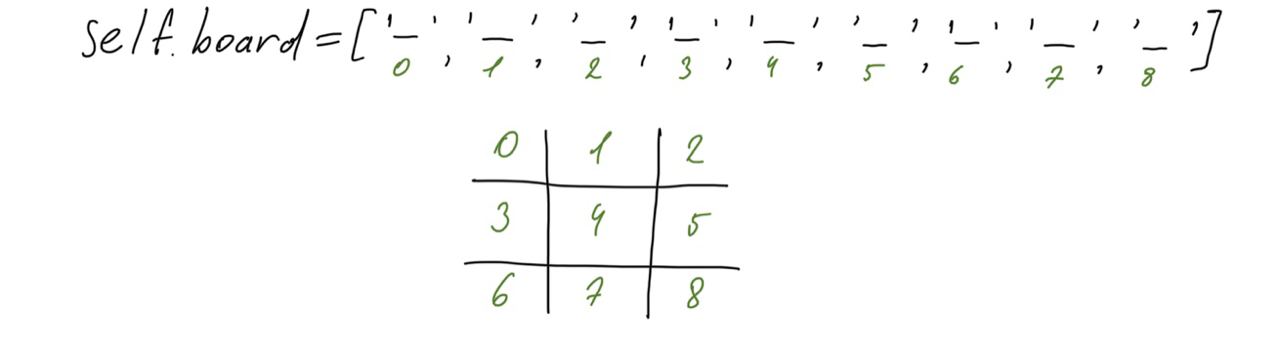 self.board=['_', '_', '_', '_', '_', '_', '_', '_', '_']
0 1 2 3 4 5 6 7 8
0 1 2
3 4 5
6 7 8